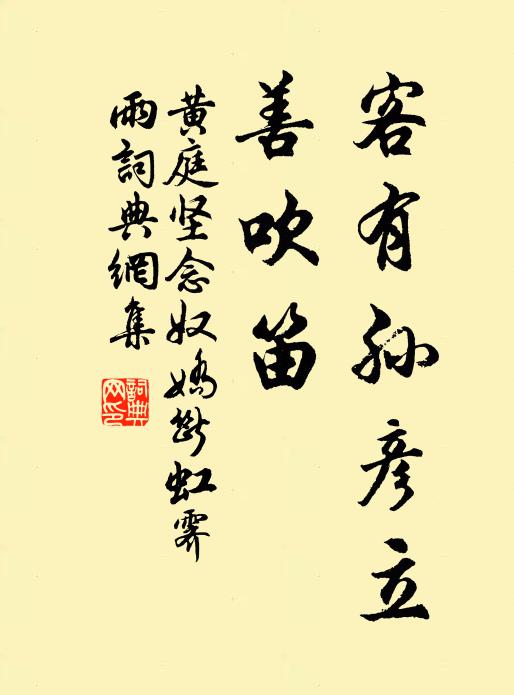 客有孙彦立
善吹笛
黄庭坚念奴娇断虹霁
雨词典網集
詞典
网印